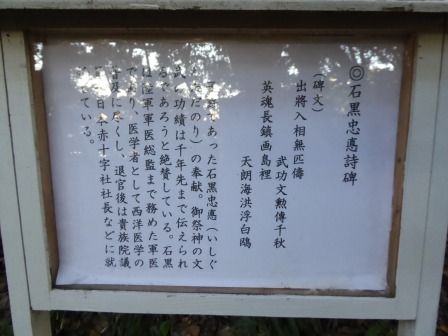 ◎石黒忠悳詩碑
(碑文)
出將入相無匹儔
武功文勲傳千秋
英魂長鎮画島裡
天朗海洪浮白鴎
であった石黒忠悳(いしぐ
ただのり)の奉献。御祭神の文
武の功績は千年先まで伝えられ
るであろうと絶賛している。石黒
は陸軍軍医総監まで務めた軍医
であり、医学者として西洋医学の
普及に尽くし、退官後は貴族院議
日本赤十字社社長などに就
ている。